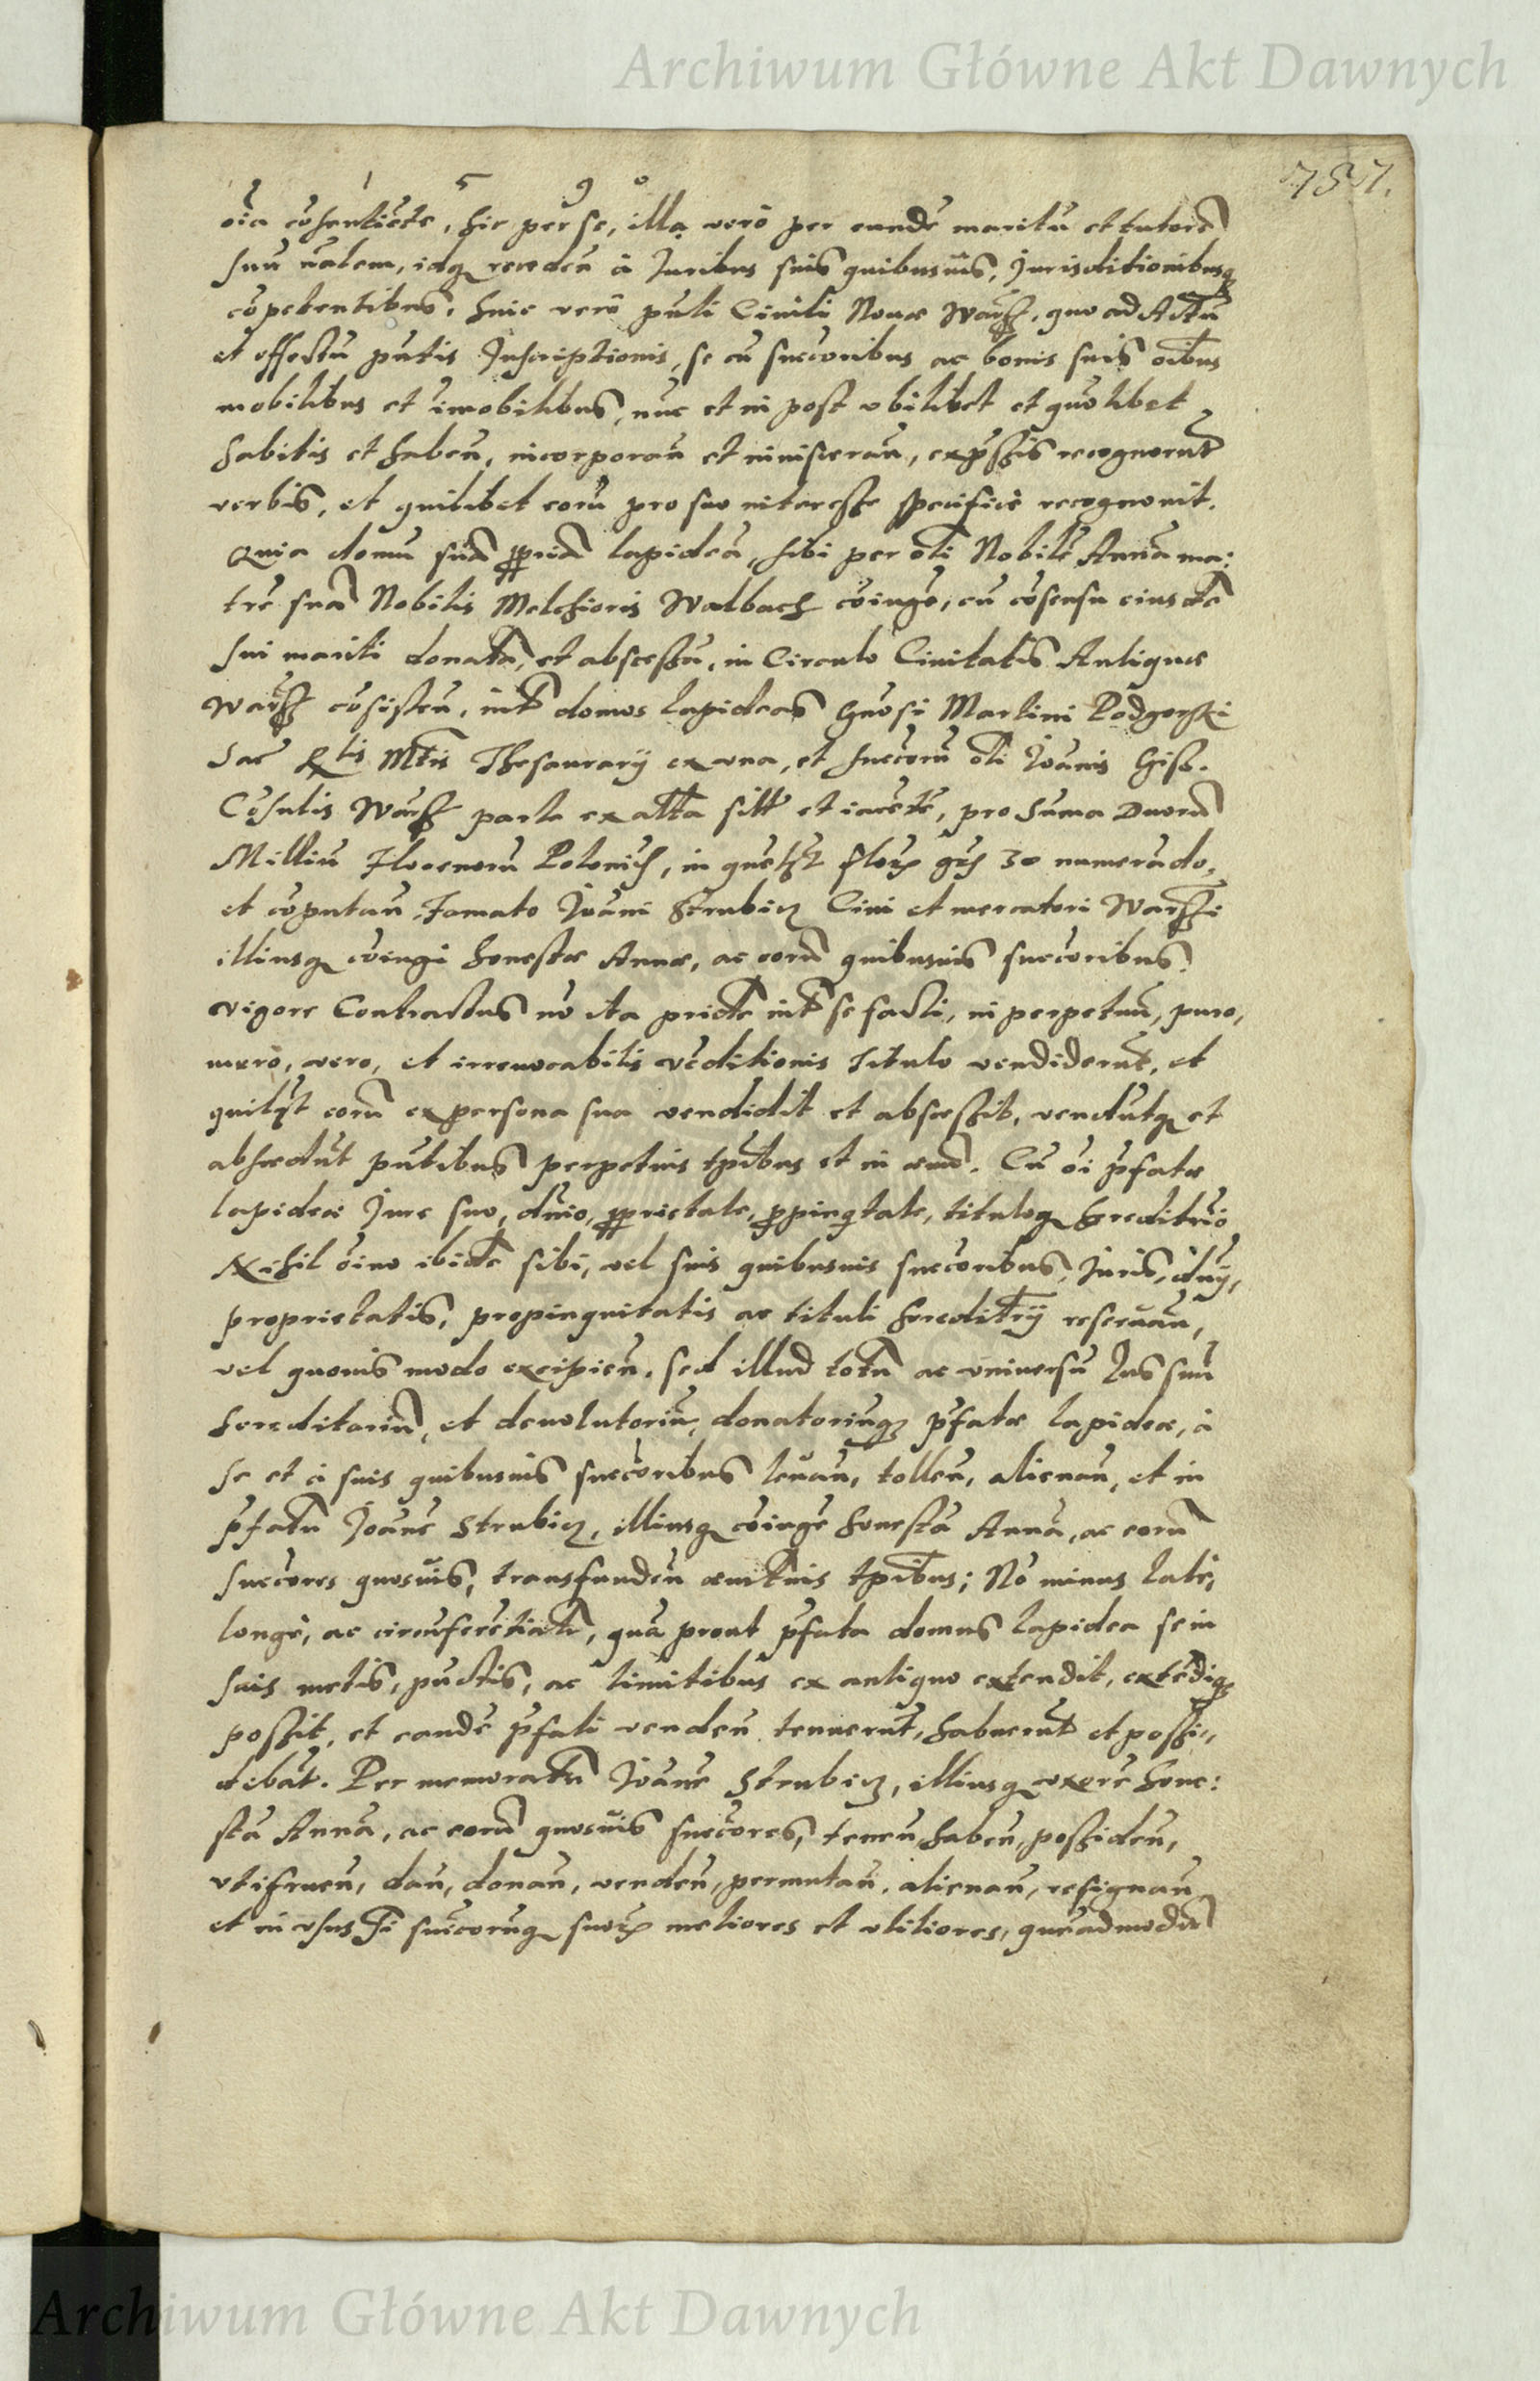 Archiwum Główne Akt Dawnych
1 5 9 0
757.
oīa cōsentiēte, hic per se, illa verò per eundē maritū et tutorē
suū nālem, idq₃ receden̄ à Juribus suis quibusuis, Jurisditionibusq₃
cōpetentibus, huic verò pn̄ti Ciuili Nouae Warsꝫ, quo ad Actū
et effectū pn̄tis Inscriptionis, se cū succ̄oribus ac bonis suis oībus
mobilibus et īmobilibus, nūc et in post vbilibet et quolibet
habitis et haben̄, incorporan̄ et inuisceran̄, exp̄ssis recognorūt
verbis, et quilibet eorū pro suo interesse specificè recognouit.
Quia domū suā ꝓpriā lapideā, sibi per olī Nobilē Annā ma:
trē suā Nobilis Melchioris Walbach cōiugē, cū cōsensu eiusdē
sui mariti donatā, et abscessā, in Circulo Ciuitatis Antiquae
Warsꝫ cōsisten̄, int̄ domos lapideas Gn̄osi Martini Podgorski
Sac̄ Rtis Mtis Thesaurarÿ ex vna, et succ̄orū olī Joānis Gisz.
Cōsulis Warsꝫ parte ex altā sitā et iacētē, pro Sūma Duorū
Milliū Florenorū Polonicꝫ, in quēlꝫt florꝫ grꝫ 30 numerādo,
et cōputan̄ Famato Joāni Strubicꝫ Ciui et mercatori Warssi
illiusq₃ cōiugi honestae Annae, ac eorū quibusuis succ̄oribus.
vigore Contractus nō ita pridē int̄ se facti, in perpetuū, puro,
mero, vero, et irreuocabilis vēditionis titulo vendiderūt, et
quilꝫt eorū ex persona sua vendidit et abscessit, vendūtq₃ et
abscedūt pn̄tibus perpetuis tp̄ibus et in aeuū. Cū oī p̄fatae
lapideae Jure suo, dn̄io, ꝓprietate, ꝓpinq̄tate, tituloq₃ hereditr̄io
Nihil oīno ibidē sibi, vel suis quibusuis succ̄oribus, Juris, dn̄ÿ,
proprietatis, propinquitatis ac tituli hereditr̄ÿ reseruan̄,
vel quouis modo excipien̄. sed illud totū ac vniuersū Jus suū
hereditariū, et deuolutoriū, donatoriūq₃ p̄fatae lapideae, à
se et à suis quibusuis succ̄oribus leuan̄, tollen̄, alienan̄, et in
p̄fatū Joānē Strubicꝫ, illiusq₃ cōiugē honestā Annā, ac eorū
succ̄ores quosuis, transfunden̄ aeuit̄nis tp̄ibus; Nō minus latè,
longè, ac circūferētiatī, quā prout p̄fata domus lapidea se in
suis metis, pūctis, ac limitibus ex antiquo extendit, extēdiq₃
possit, et eandē p̄fati venden̄ tenuerūt, habuerūt et possi„
debāt. Per memoratū Joānē Strubicꝫ, illiusq₃ vxorē hone:
stā Annā, ac eorū quosuis succ̄ores, tenen̄, haben̄, possiden̄,
vtifruen̄, dan̄, donan̄, venden̄, permutan̄, alienan̄, resignan̄
et in vsus sui succ̄orūq₃ suorꝫ meliores et vtiliores, quēadmodū
Archiwum Główne Akt Dawnych